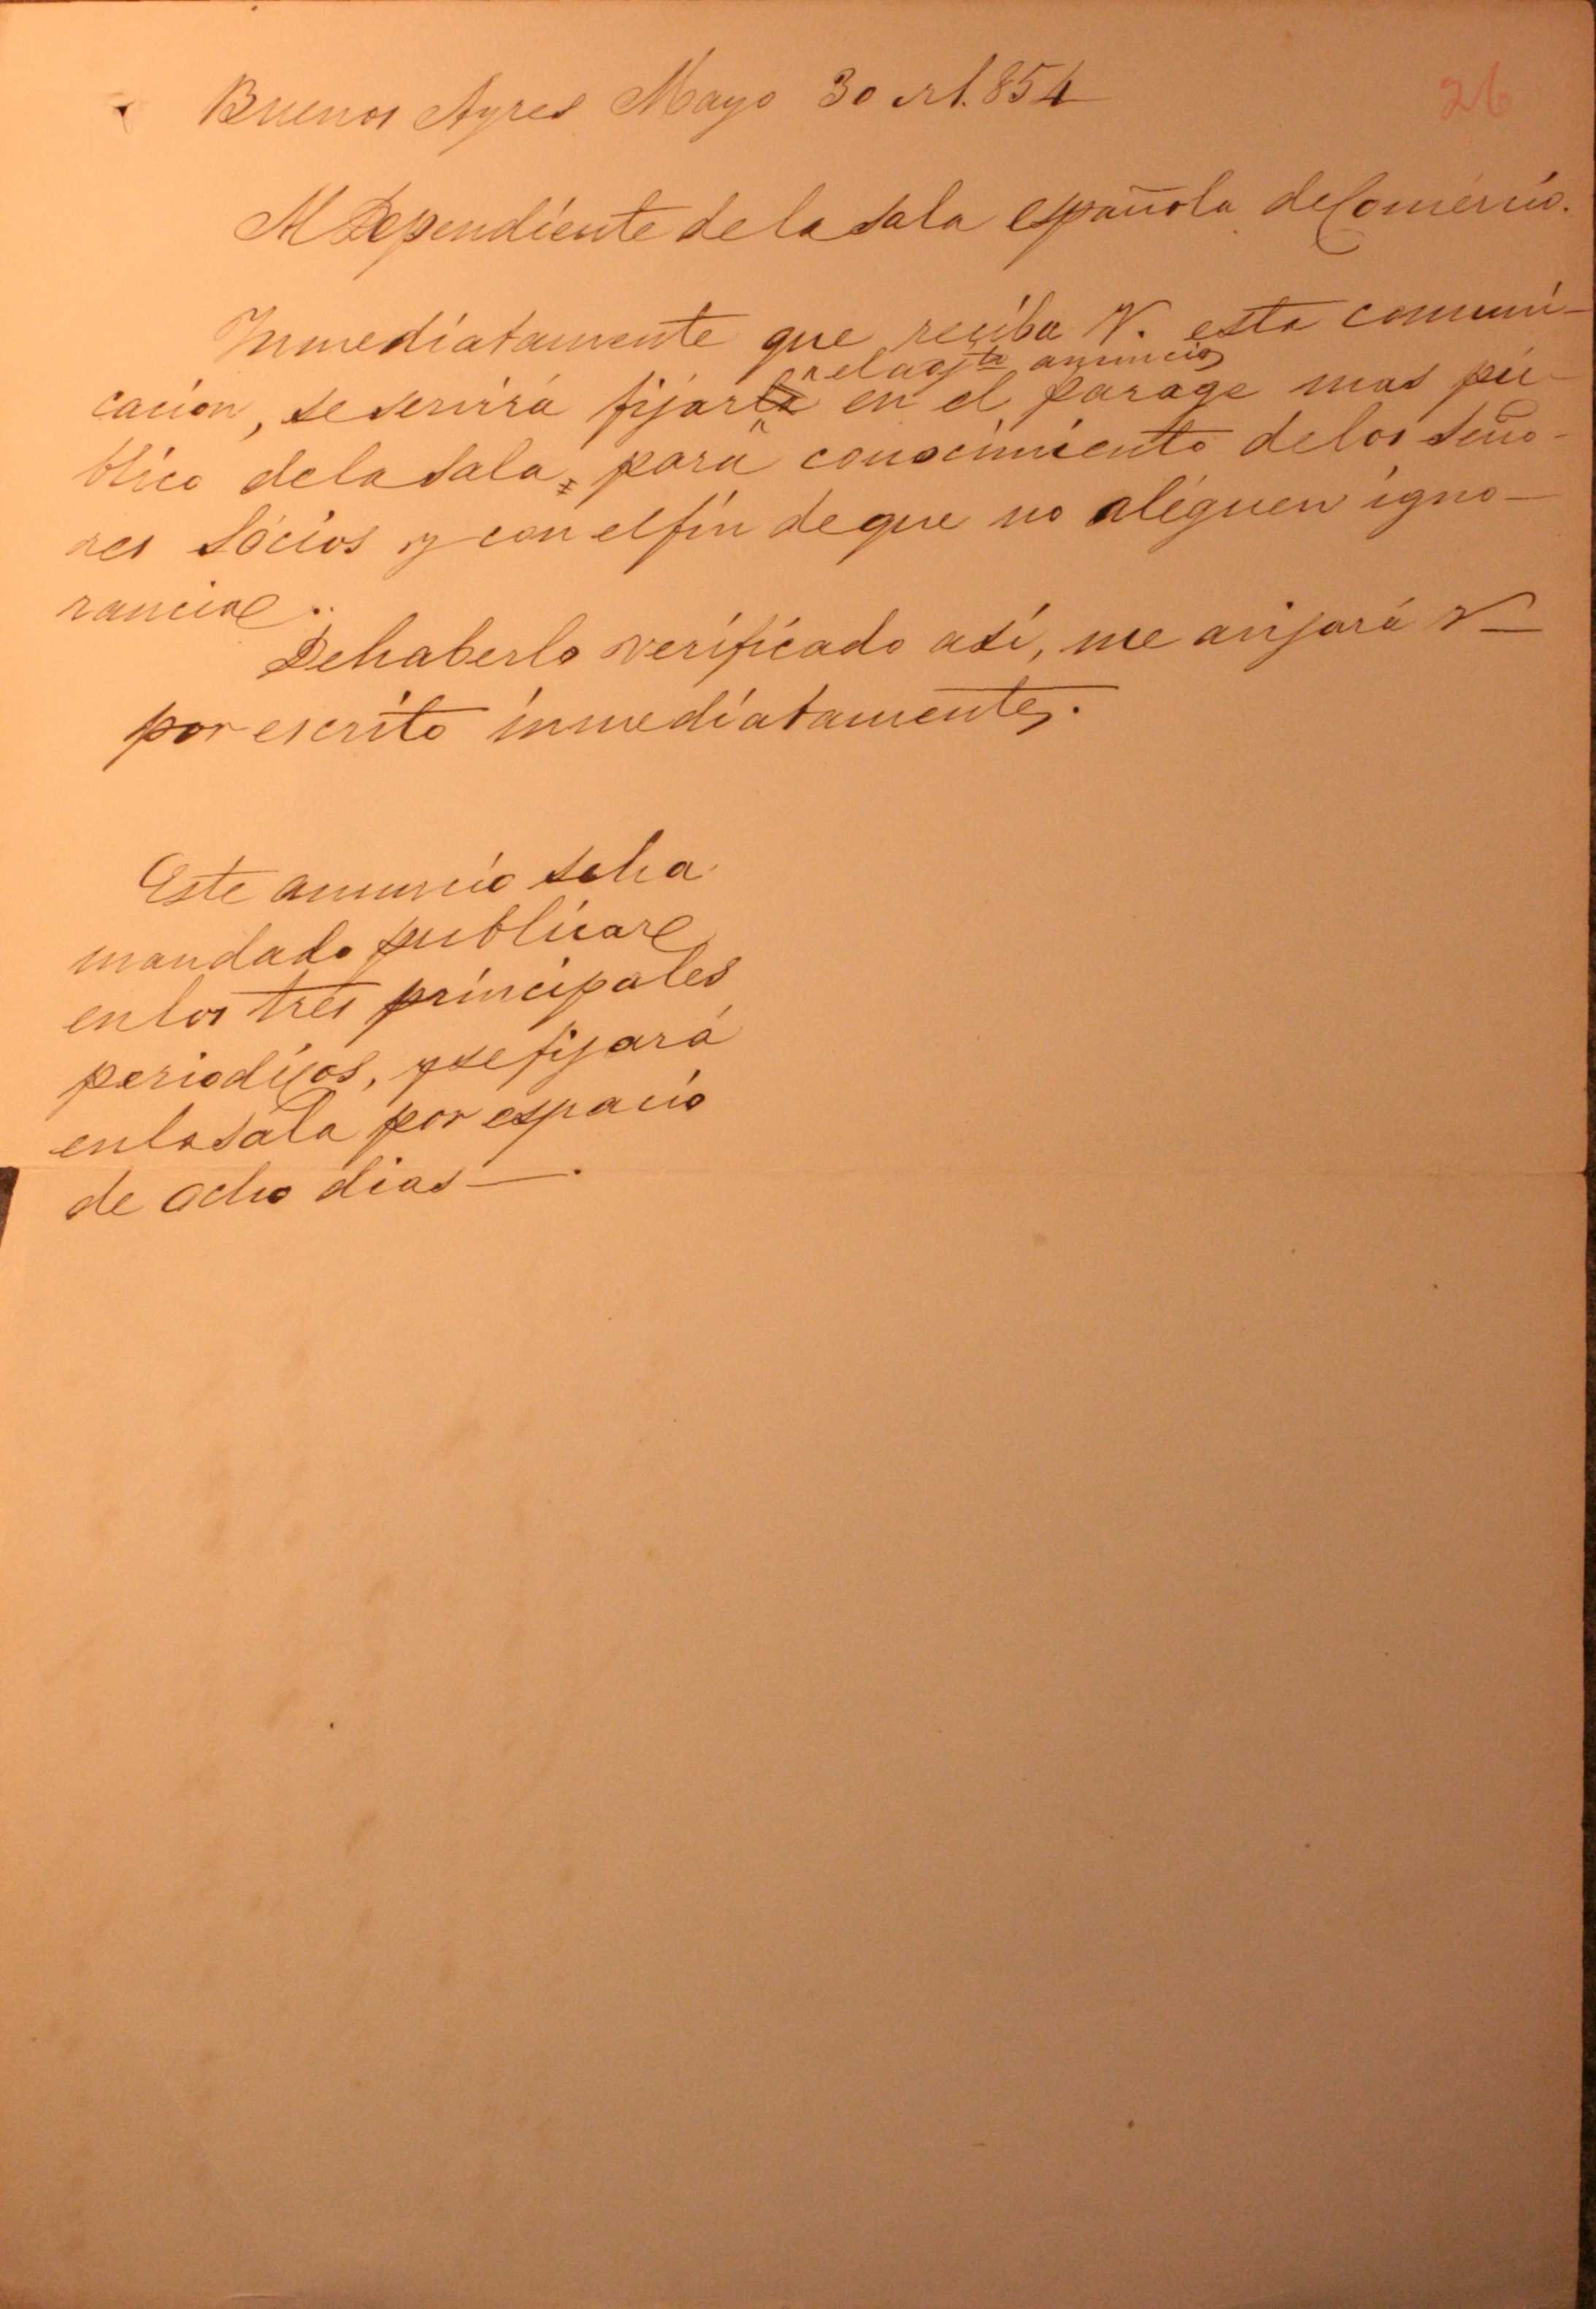 26
Buenos Ayres Mayo 30 de 1.854
Al Dependiente de la Sala española de Comércio.
Inmediatamente que reciba V. esta comuni-
cacion, se servirá fijar en el parage mas pú-
el adj.to anuncio
blico de la Sala, para conocimiento de los Seño-
res Sócios y con el fin de que no aleguen igno-
rancia.
De haberlo verificado así, me avisará V
por escrito inmediatamente.
Este anuncio se ha
mandado publicar
en los tres principales
periodicos, y se fijará
en la Sala por espacio
de ocho dias.